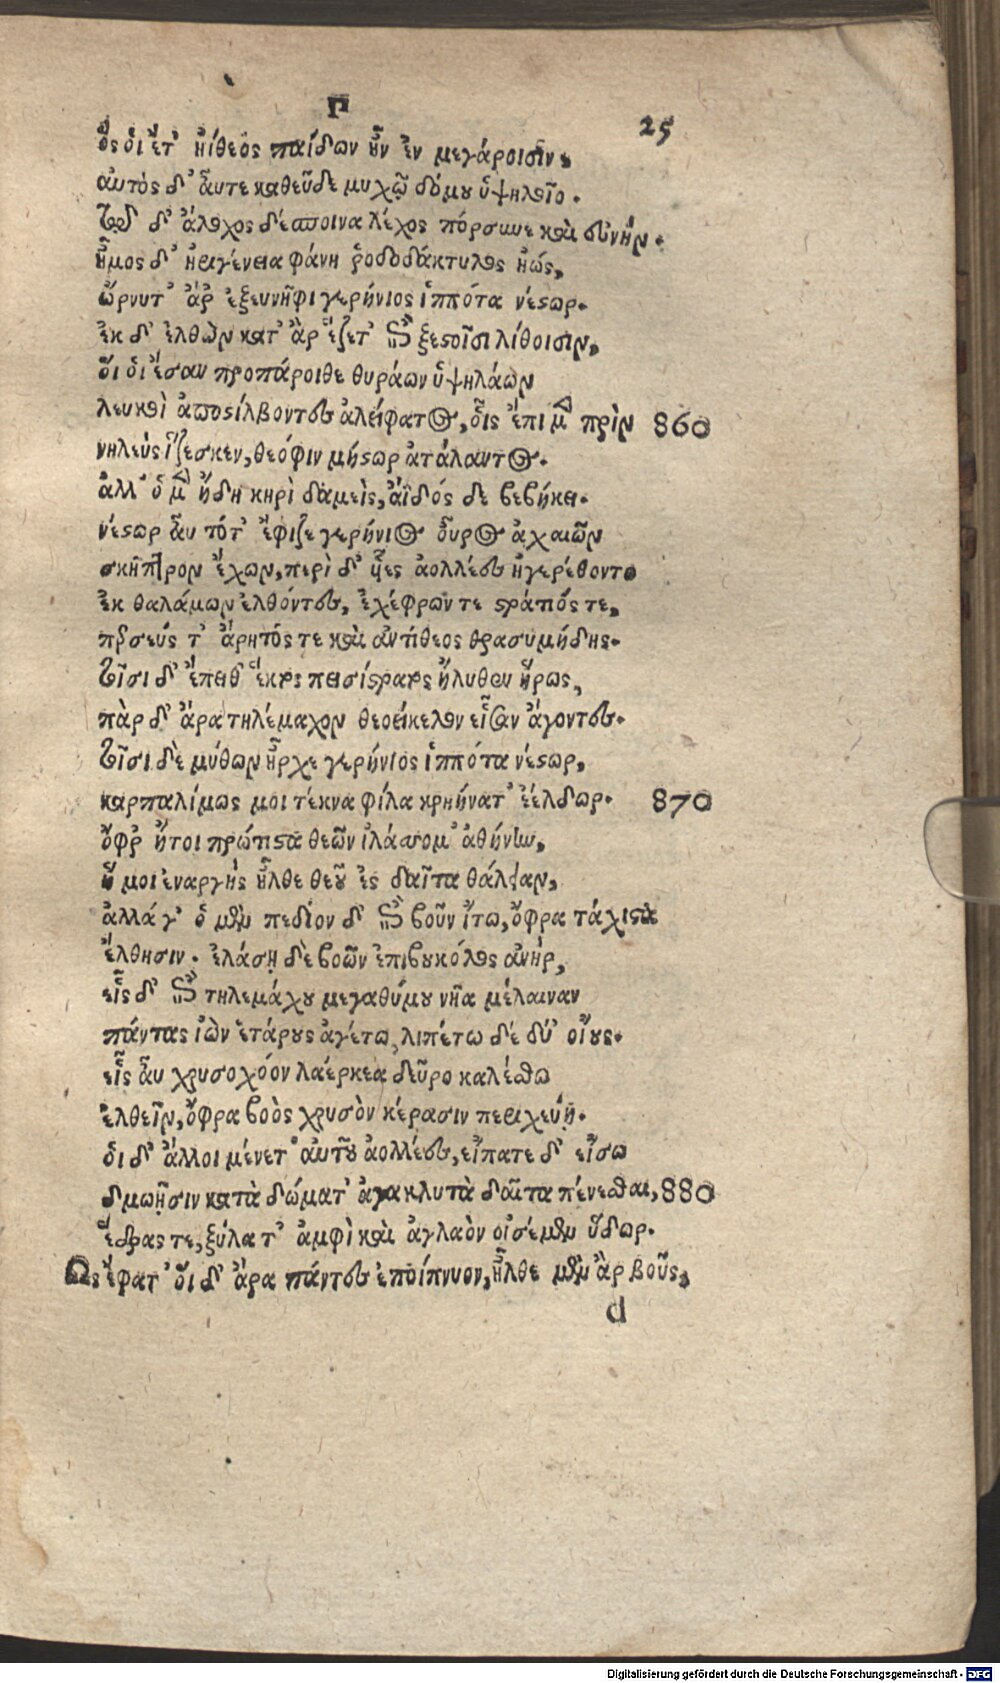 Γ
25
ὅς οἱ ἔτ' ἠίθεος παίδων ἦν ἐν μεγάροισιν,
αὐτὸς δ' αὖτε καθεῦδε μυχῷ δόμου ὑψηλοῖο.
τῷ δ' ἄλοχος δέσποινα λέχος πόρσυνε καὶ εὐνήν.
ἦμος δ' ἠριγένεια φάνη ῥοδοδάκτυλος ἠώς,
ὤρνυτ' ἄρ ἐξευνῆφι γερήνιος ἱππότα νέστωρ.
ἐκ δ' ἐλθὼν κατ' ἂρ ἕζετ' ἐπὶ ξεστοῖσι λίθοισιν,
οἵ οἱ ἔσαν προπάροιθε θυράων ὑψηλάων
λευκοὶ ἀποστίλβοντες ἀλείφατος, οἷς ἔπι μὲν πρὶν 860
νηλεὺς ἵζεσκεν, θεόφιν μήστωρ ἀτάλαντος.
ἀλλ' ὁ μὲν ἤδη κηρὶ δαμεὶς, ἄϊδός δε βεβήκει.
νέστωρ αὖ τότ' ἔφιζε γερήνιος οὖρος ἀχαιῶν
σκῆπτρον ἔχων, περὶ δ' υἷες ἀολλέες ἠγερέθοντο
ἐκ θαλάμων ἐλθόντες, ἐχέφρων τε στράτιός τε,
περσεύς τ' ἄρητός τε καὶ ἀντίθεος θρασυμήδης.
τοῖσι δ' ἔπειθ' ἕκτος πεισίστρατος ἤλυθεν ἥρως,
πὰρ δ' ἄρα τηλέμαχον θεοείκελον εἷσαν ἄγοντες.
τοῖσι δὲ μύθων ἦρχε γερήνιος ἱππότα νέστωρ,
καρπαλίμως μοι τέκνα φίλα κρηήνατ' ἐέλδωρ. 870
ὄφρ' ἤτοι πρώτιστα θεῶν ἱλάσσομ' ἀθήνην,
ἥ μοι ἐναργὴς ἦλθε θεοῦ ἐς δαῖτα θάλειαν,
ἀλλά γ' ὁ μὲν πεδίον δ' ἐπὶ βοῦν ἴτω, ὄφρα τάχιστα
ἔλθησιν. ἐλάσῃ δὲ βοῶν ἐπιβουκόλος ἀνήρ,
εἷς δ' ἐπὶ τηλεμάχου μεγαθύμου νῆα μέλαιναν
πάντας ἰὼν ἑτάρους ἀγέτω, λιπέτω δέ δύ' οἴους.
εἷς αὖ χρυσοχόον λαέρκεα δεῦρο καλέσθω
ἐλθεῖν, ὄφρα βοὸς χρυσὸν κέρασιν περιχεύῃ.
οἱ δ' ἄλλοι μένετ' αὐτοῦ ἀολλέες, εἴπατε δ' εἴσω
δμωῇσιν κατὰ δώματ' ἀγακλυτὰ δαῖτα πένεσθαι, 880
ἕδρας τε, ξύλα τ' ἀμφὶ καὶ ἀγλαὸν οἰσέμεν ὕδωρ.
Ως ἔφατ' οἵ δ' ἄρα πάντες ἐποίπνυον, ἦλθε μὲν ἂρ βοῦς,
d
Digitalisierung gefördert durch die Deutsche Forschungsgemeinschaft - DFG